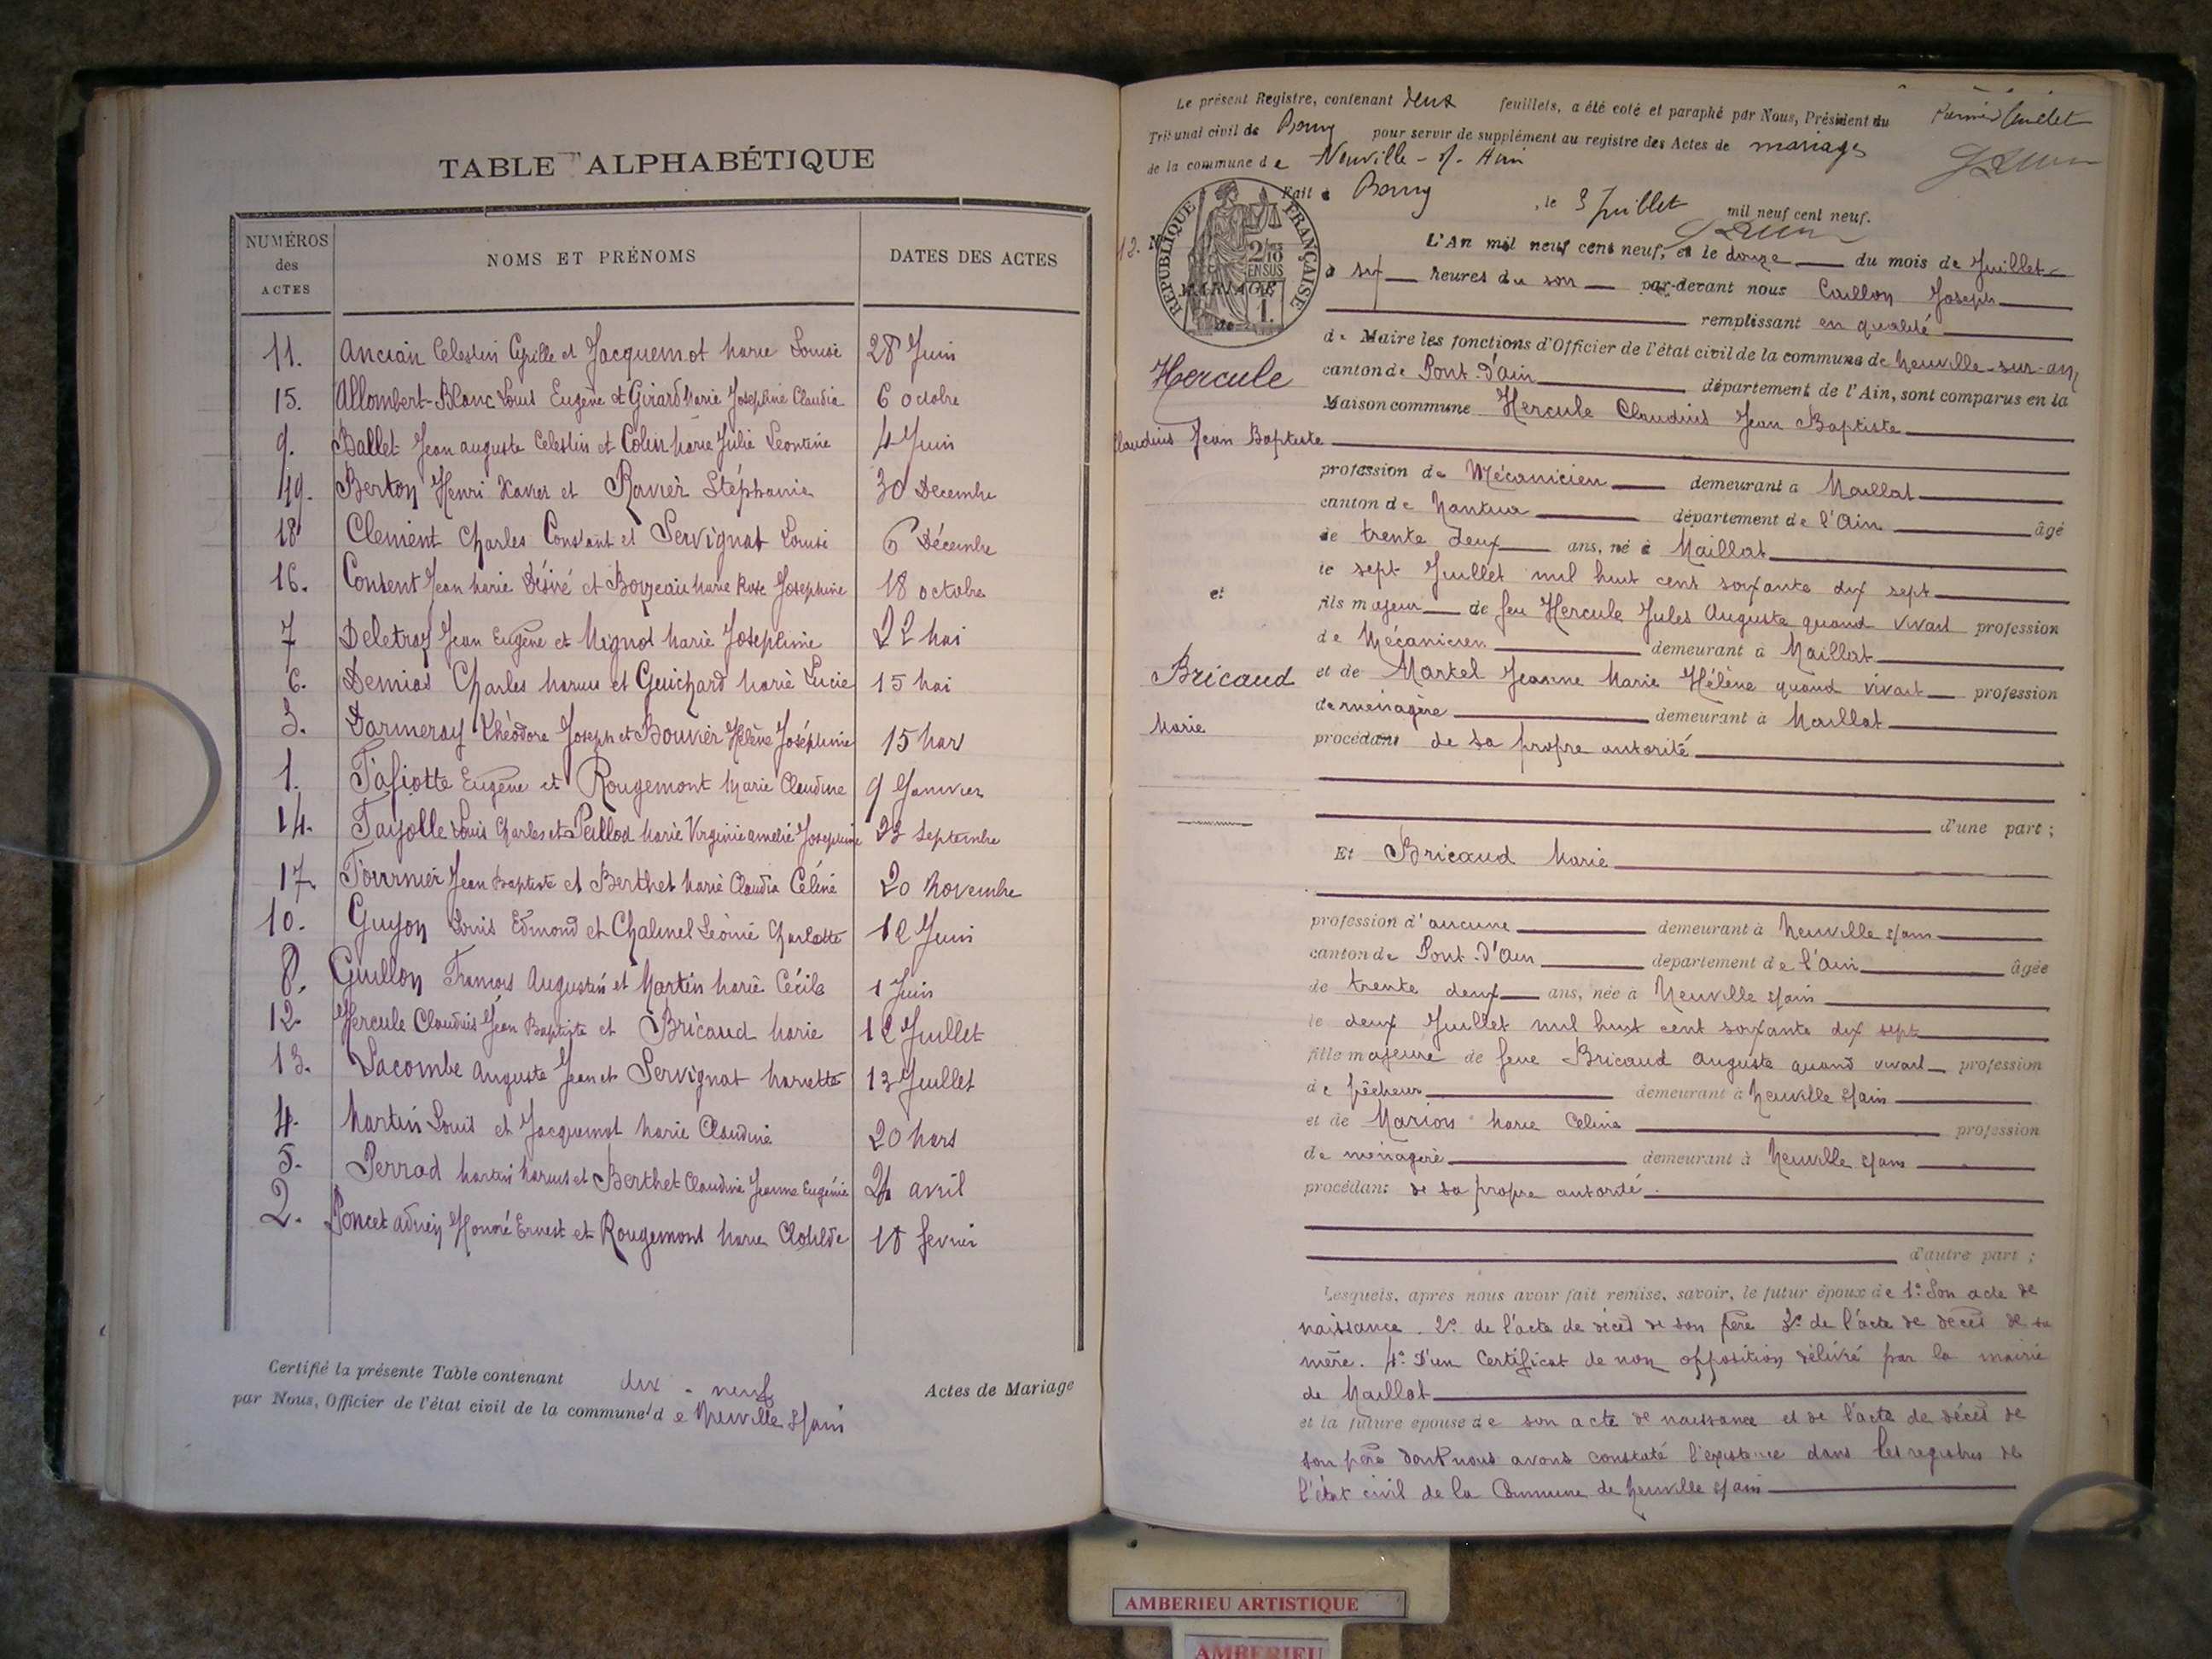 TABLE ALPHABÉTIQUE
NUMÉROS des ACTES
NOMS ET PRÉNOMS
DATES DES ACTES
11. Ancian Celestin Cyrille et Jacquemot Marie Louise 28 Juin
15. Allombert-Blanc Louis Eugène et Girard Marie Josephine Claudia 6 octobre
9. Ballet Jean auguste Celestin et Colin Marie Julie Leontine 4 Juin
19. Berton Henri Xavier et Ravier Stéphanie 30 Décembre
18 Clement Charles Constant et Servignat Louise 6 Décembre
16. Convent Jean Marie Désiré et Marie Rose Josephine 18 octobre
7 Deletray Jean Eugène et Mignot Marie Josephine 22 Mai
6. Demias Charles Marius et Guichard Marie Lucie 15 Mai
3. Darmeray Théodore Joseph et Bouvier Hélène Joséphine 15 Mars
1. Fafiotte Eugène et Rougemont Marie Claudine 9 Janvier
14. Fayolle Louis Charles et Paillod Marie Virginie amelie Josephine 23 Septembre
17. Fournier Jean Baptiste et Berthet Marie Claudia Céline 20 Novembre
10. Guyon Louis Edmond et Chalumel Léonie Charlotte 12 Juin
8. Guillon François Augustin et Martin Marie Cécile 1 Juin
12. Hercule Claudius Jean Baptiste et Bricaud Marie 12 Juillet
13. Lacombe Auguste Jean et Servignat Mariette 13 Juillet
4. Martin Louis et Jacquemot Marie Claudine 20 Mars
5. Perrod Martin Marius et Berthet Claudine Jeanne Eugénie 24 avril
2. Poncet adrien Honoré Ernest et Rougemont Marie Clotilde 18 fevrier
Certifié la présente Table contenant dix-neuf Actes de Mariage
par Nous, Officier de l'état civil de la commune de Neuville s/ain
Le présent Registre, contenant deux feuillets, a été coté et paraphé par Nous, Président du Premier feuillet
Tribunal civil de Bourg pour servir de supplément au registre des Actes de mariages
de la commune de Neuville - s/- Ain
Fait à Bourg, le 3 Juillet mil neuf cent neuf.
RÉPUBLIQUE FRANÇAISE
2/10 EN SUS
1.
12. N
MARIAGE
de
L'An mil neuf cent neuf, et le douze du mois de Juillet
à six heures du soir par-devant nous Caillon Joseph
remplissant en qualité
de Maire les fonctions d'Officier de l'état civil de la commune de Neuville-sur-ain
Hercule
canton de Pont-d'ain département de l'Ain, sont comparus en la
Maison commune Hercule Claudius Jean Baptiste
Claudius Jean Baptiste
profession de Mécanicien demeurant à Maillat
canton de Nantua département de l'Ain âgé
de trente deux ans, né à Maillat
le sept Juillet mil huit cent soixante dix sept
et
fils majeur de feu Hercule Jules Auguste quand vivait profession
de Mécanicien demeurant à Maillat
Bricaud
et de Martel Jeanne Marie Hélène quand vivait profession
de ménagère demeurant à Maillat
Marie
procédant de sa propre autorité
d'une part ;
Et Bricaud Marie
profession d'aucune demeurant à Neuville s/ain
canton de Pont-d'Ain département de l'Ain âgée
de trente deux ans, née à Neuville s/ain
le deux Juillet mil huit cent soixante dix sept
fille majeure de feue Bricaud Auguste quand vivait profession
de pêcheur demeurant à Neuville s/ain
et de Marion Marie Celine profession
de ménagère demeurant à Neuville s/ain
procédant de sa propre autorité.
d'autre part ;
Lesquels, après nous avoir fait remise, savoir, le futur époux de 1° Son acte de
naissance. 2° de l'acte de décès de son père 3° de l'acte de décès de sa
mère. 4° D'un Certificat de non opposition délivré par la mairie
de Maillat
et la future épouse de son acte de naissance et de l'acte de décès de
son père dont nous avons constaté l'existence dans les registres de
l'état civil de la Commune de Neuville s/ain
AMBERIEU ARTISTIQUE
AMBERIEU